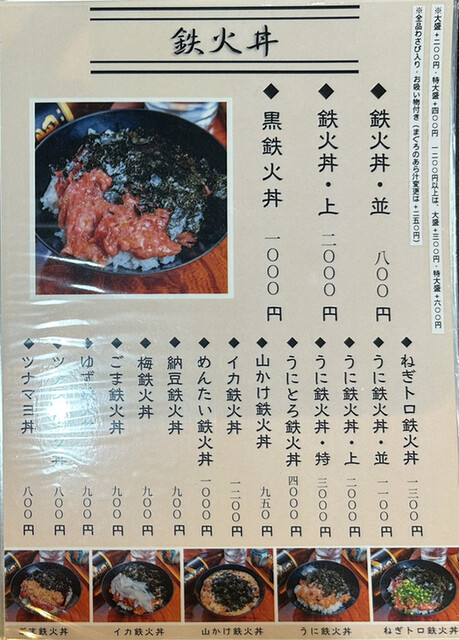 鉄火丼
※大盛+二〇〇円・特大盛+四〇〇円 一二〇〇円以上は、大盛+三〇〇円・特大盛+六〇〇円
※全品わさび入り・お吸い物付き(まぐろのあら汁変更は+二五〇円)
◆鉄火丼・並 八〇〇円
◆鉄火丼・上 二〇〇〇円
◆黒鉄火丼 一〇〇〇円
◆ねぎトロ鉄火丼 一三〇〇円
◆うに鉄火丼・並 一一〇〇円
◆うに鉄火丼・上 二〇〇〇円
◆うに鉄火丼・特 三〇〇〇円
◆うにとろ鉄火丼 四〇〇〇円
◆山かけ鉄火丼 九五〇円
◆イカ鉄火丼 一二〇〇円
◆めんたい鉄火丼 一〇〇〇円
◆納豆鉄火丼 九〇〇円
◆梅鉄火丼 九〇〇円
◆ごま鉄火丼 九〇〇円
◆ゆず鉄火丼 九〇〇円
◆ツ 丼 八〇〇円
◆ツナマヨ丼 八〇〇円
ごま鉄火丼
イカ鉄火丼
山かけ鉄火丼
うに鉄火丼
ねぎトロ鉄火丼